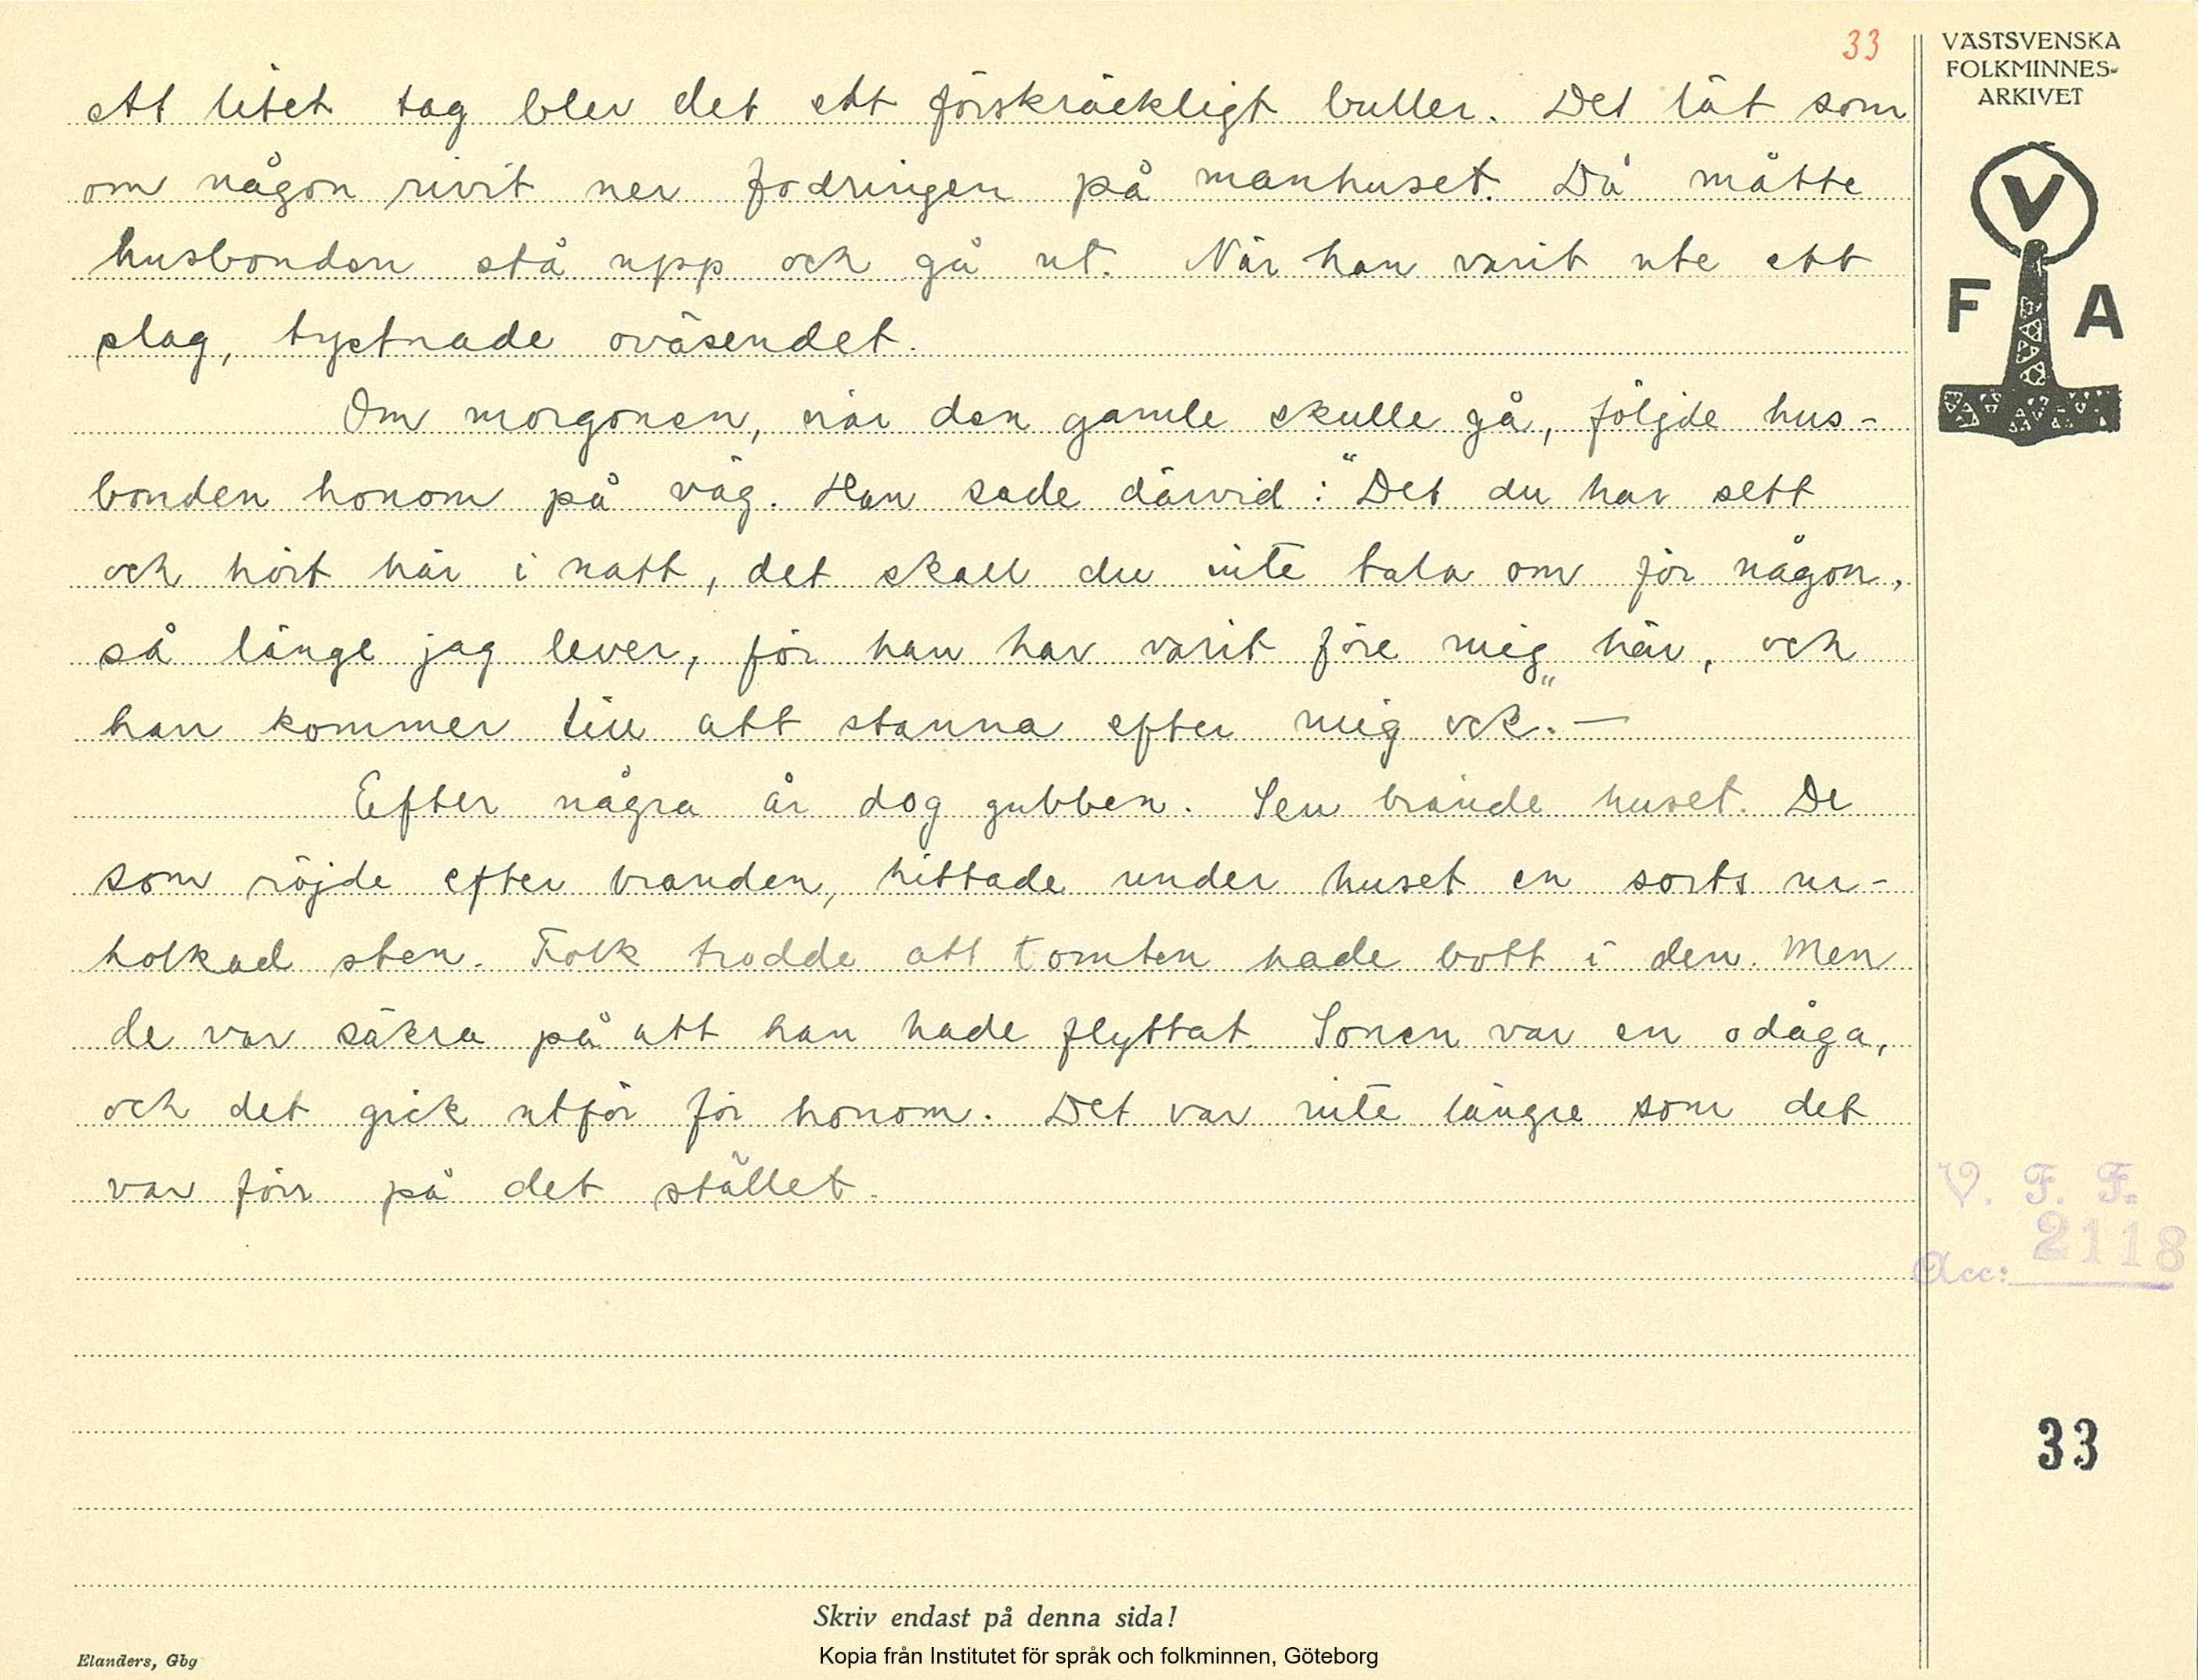 33
VÄSTSVENSKA
FOLKMINNES-
ARKIVET
V
F A
ett litet tag blev det ett förskräckligt buller. Det lät som
om någon rivit ner fodringen på manhuset. Då måtte
husbonden stå upp och gå ut. När han varit ute ett
slag, tystnade oväsendet.
Om morgonen, när den gamle skulle gå, följde hus-
bonden honom på väg. Han sade därvid: "Det du har sett
och hört här i natt, det skall du inte tala om för någon,
så länge jag lever, för han har varit före mig här, och
han kommer till att stanna efter mig ock." —
Efter några år dog gubben. Sen brände huset. De
som röjde efter branden, hittade under huset en sorts ur-
holkad sten. Folk trodde att tomten hade bott i den. Men
de var säkra på att han hade flyttat. Sonen var en odåga,
och det gick utför för honom. Det var inte längre som det
var förr på det stället.
V. F. F.
Acc: 2118
33
Skriv endast på denna sida!
Elanders, Gbg
Kopia från Institutet för språk och folkminnen, Göteborg